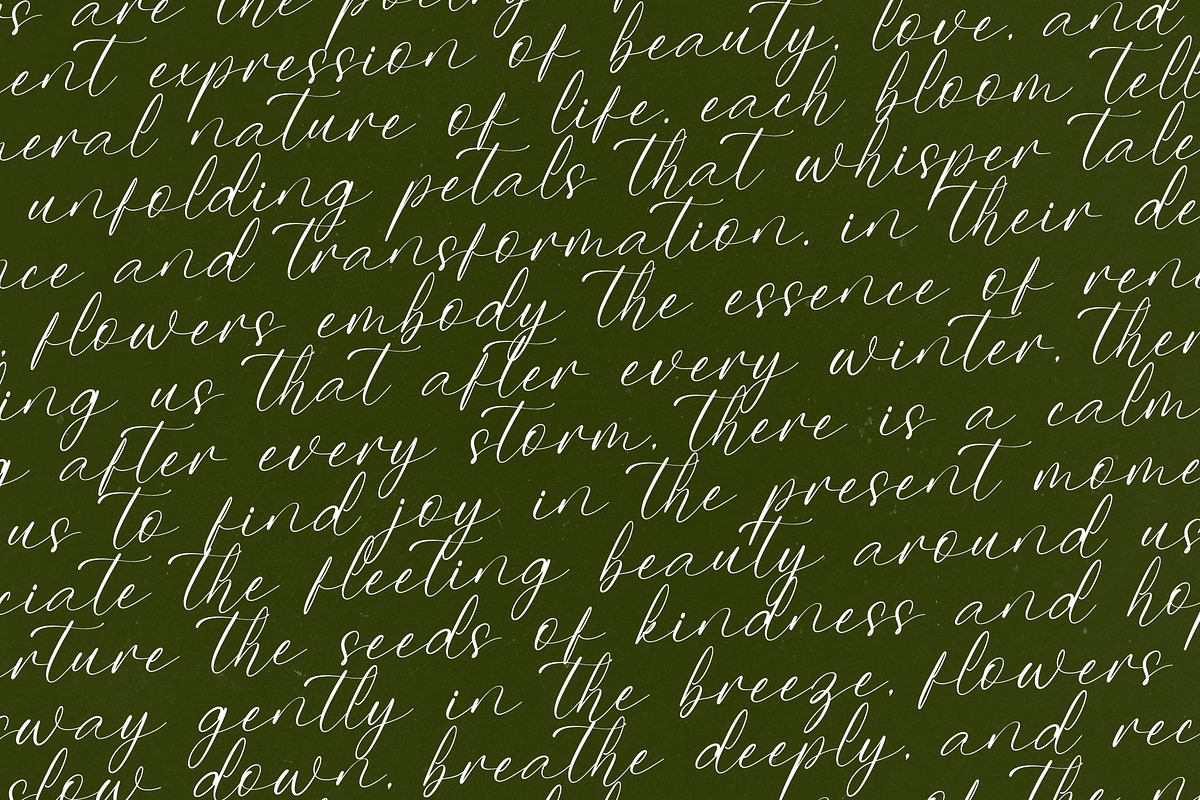 are the poetry
ent expression of beauty, love, and
eral nature of life. each bloom tell
unfolding petals that whisper tale
nce and transformation. in their de
flowers embody the essence of ren
ing us that after every winter, ther
g after every storm, there is a calm
us to find joy in the present mome
ciate the fleeting beauty around us
rture the seeds of kindness and ho
sway gently in the breeze, flowers
slow down, breathe deeply, and rec
of the